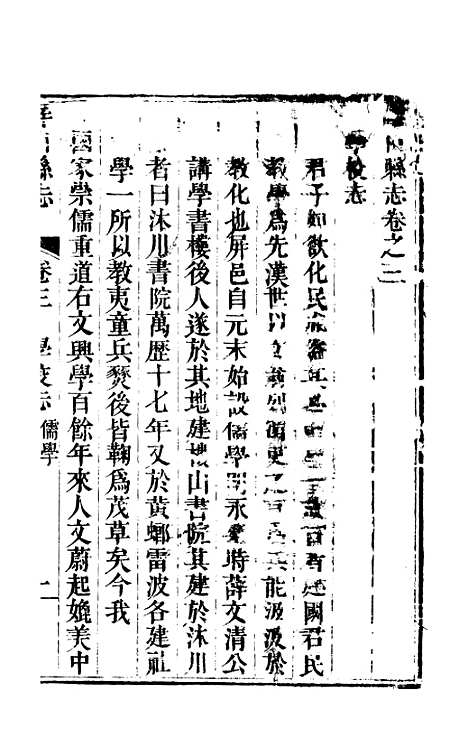 縣志卷之三
學校志
君子如欲化民 國君民
教學為先漢世以文 能汲汲於
教化也屏邑自元末始設儒學明永 時薛文清公
講學書樓後人遂於其地建 山書院其建於沐川
者曰沐川書院萬歷十七年又於黃螂雷波各建社
學一所以教夷童兵燹後皆鞠為茂草矣今我
國家崇儒重道右文興學百餘年來人文蔚起媲美中
縣志 卷三 學校志 儒學